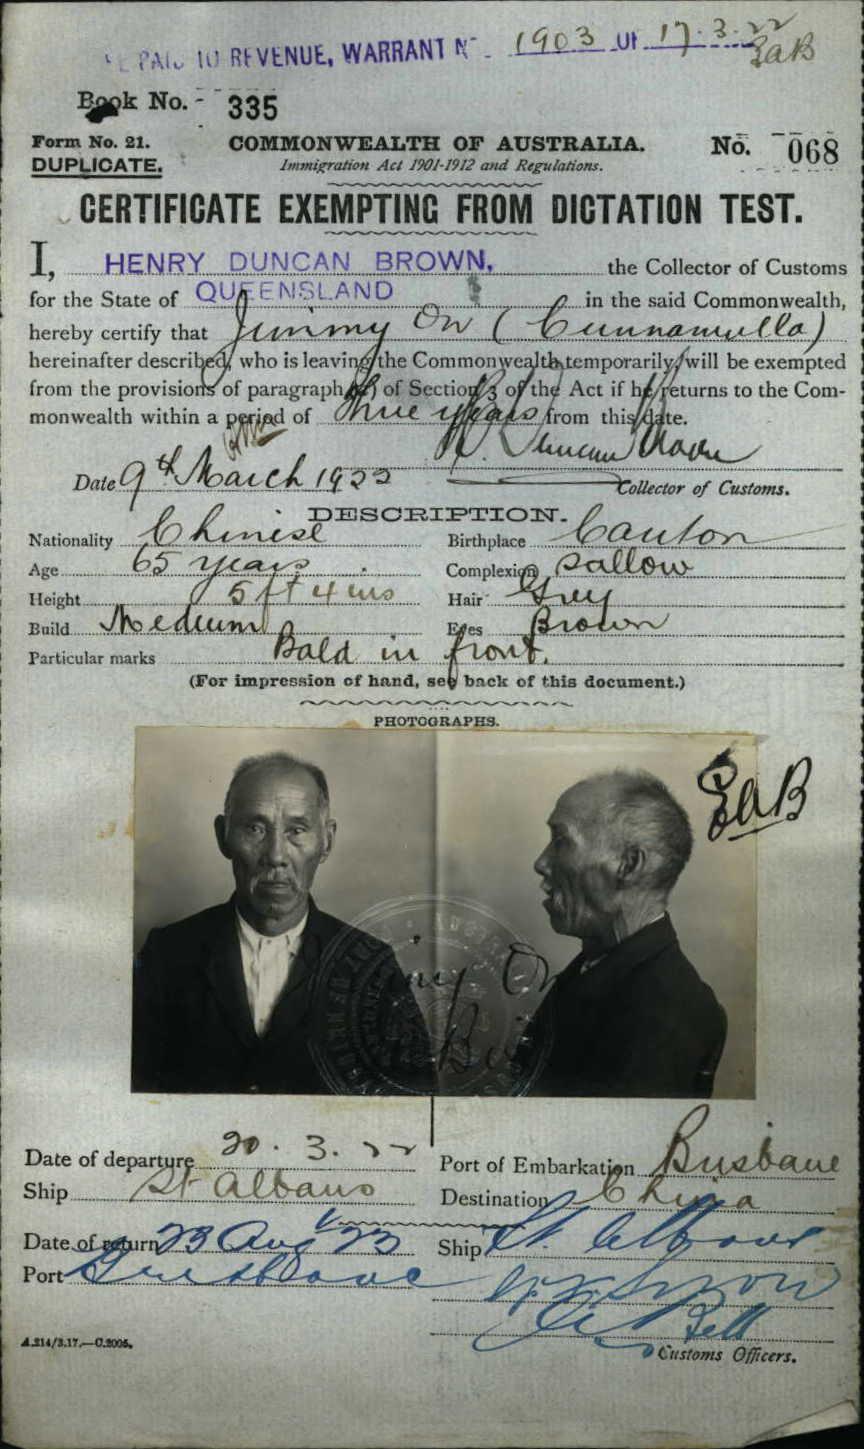 PAID TO REVENUE, WARRANT No. 1903 OF 17.3.22
EaB
Book No. 335
Form No. 21. COMMONWEALTH OF AUSTRALIA. No. 068
DUPLICATE. Immigration Act 1901-1912 and Regulations.
CERTIFICATE EXEMPTING FROM DICTATION TEST.
I, HENRY DUNCAN BROWN, the Collector of Customs
for the State of QUEENSLAND in the said Commonwealth,
hereby certify that Jimmy On (Cunnamulla)
hereinafter described, who is leaving the Commonwealth temporarily, will be exempted
from the provisions of paragraph (a) of Section 3 of the Act if he returns to the Com-
monwealth within a period of Three years from this date.
H. Duncan Brown
Date 9th March 1922 Collector of Customs.
DESCRIPTION.
Nationality Chinese Birthplace Canton
Age 65 years Complexion Sallow
Height 5 ft 4 ins Hair Grey
Build Medium Eyes Brown
Particular marks Bald in front.
(For impression of hand, see back of this document.)
PHOTOGRAPHS.
EaB
my On
Date of departure 20.3.22 Port of Embarkation Brisbane
Ship St Albans Destination China
Date of return 23 Aug 23 Ship St. Albans
Port Brisbane
Bell
A.214/3.17.—C.2005. Customs Officers.